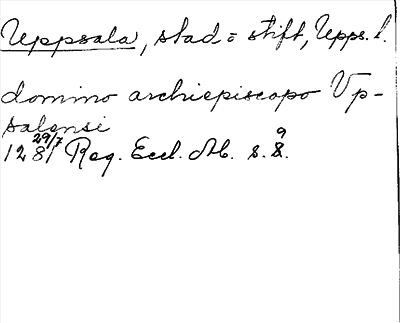 Uppsala, stad = stift, Upps. l.
domino archiepiscopo Vp-
salensi
1281 29/7 Reg. Eccl. Ab. s. 8. 9